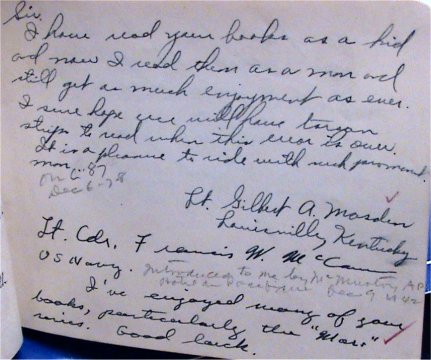 Sir.
I have read your books as a kid
and now I read them as a man and
still get as much enjoyment as ever.
I sure hope we will have tarzan
strips to read when this error is over.
It is a pleasure to ride with such prominent
men.
on C-87
Dec 6-7-8
Lt. Gilbert A. Mosden
Louisville Kentucky
Lt. Cdr. Francis W. McCann
US Navy.
Introduced to me by McMurtry, A.P.
Dec 9 1942
I've enjoyed many of your
books, particularly the "Mars"
series. Good luck.